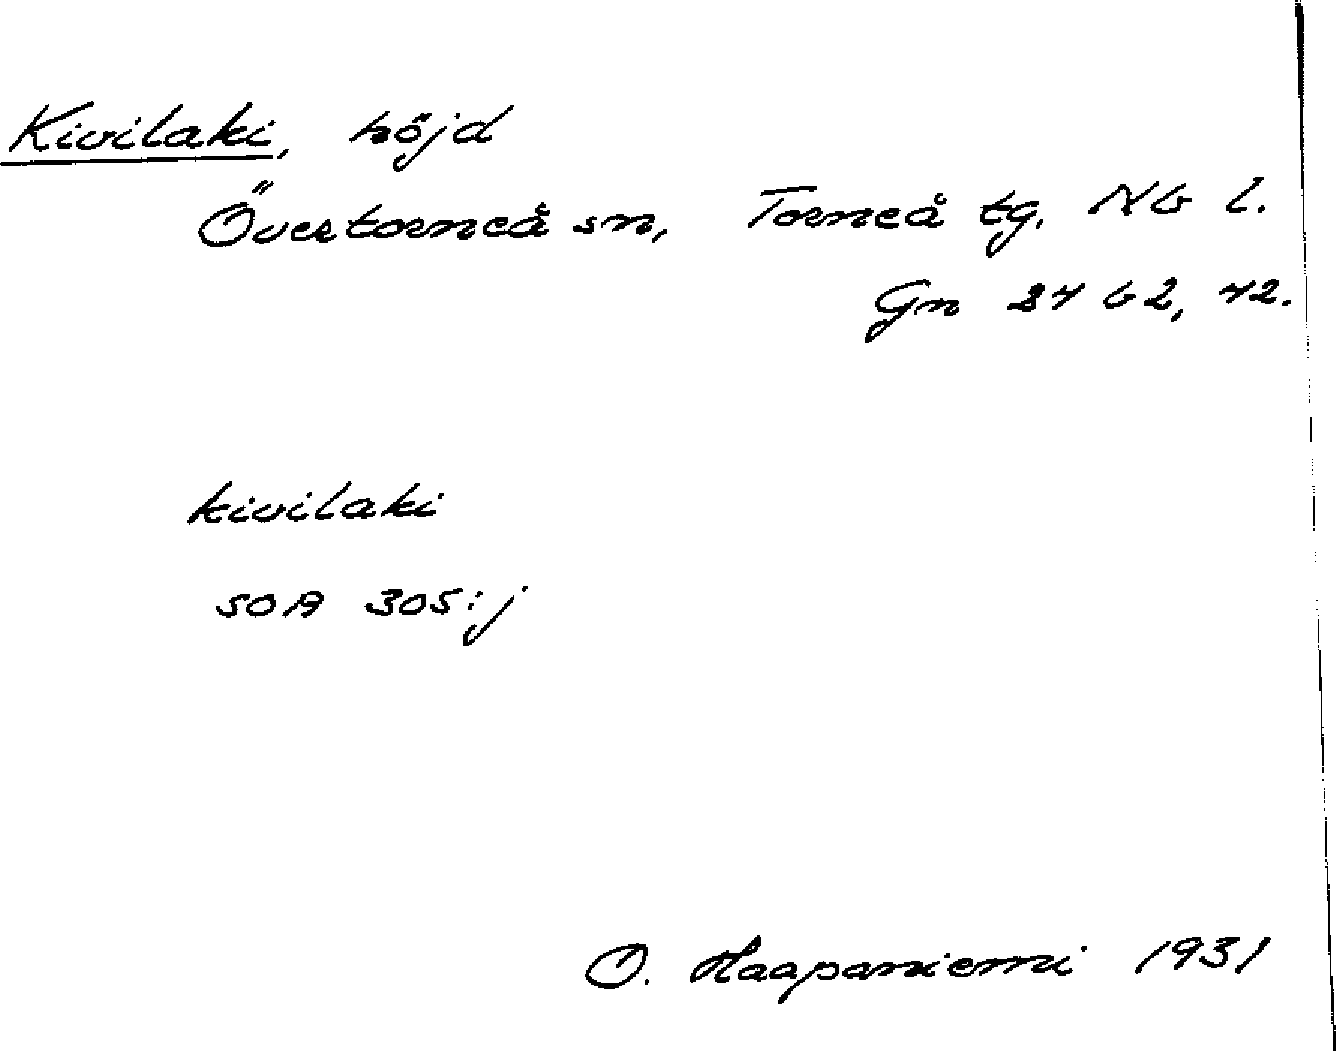 Kivilaki, höjd
Övertorneå sn, Torneå tg. Nb l.
Gn 27 b 2, 72.
kivilaki
SOA 305:j
O. Haapaniemi 1931